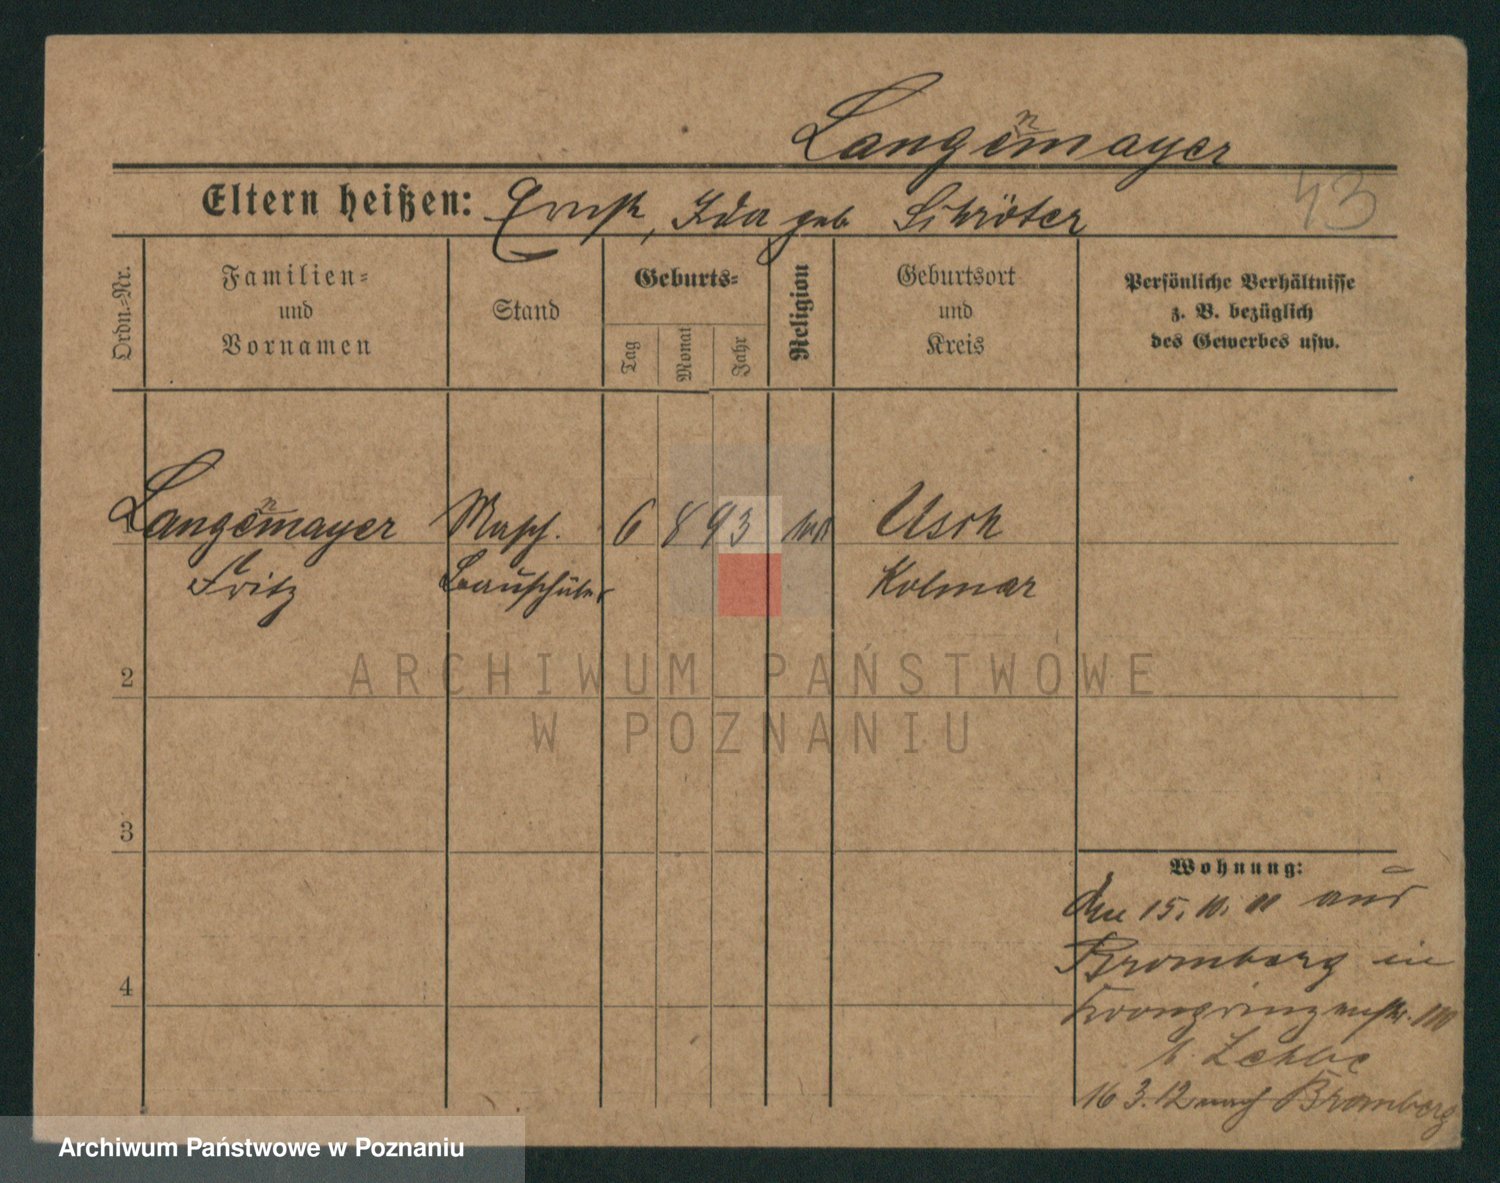 Langenmayer
Eltern heißen: Ernst, Ida geb Schröter
43
Ordn.-Nr.
Familien-
und
Vornamen
Stand
Geburts-
Tag
Monat
Jahr
Religion
Geburtsort
und
Kreis
Persönliche Verhältnisse
z. B. bezüglich
des Gewerbes usw.
Langenmayer Masch. 6 8 93 Usch
Fritz Bauschüler Kolmar
ARCHIWUM PAŃSTWOWE
W POZNANIU
2
3
4
Wohnung:
den 15. 10. 11 aus
Bromberg in
Kronprinzenstr.
b. Zehbe
16 3. 12 nach Bromberg
Archiwum Państwowe w Poznaniu